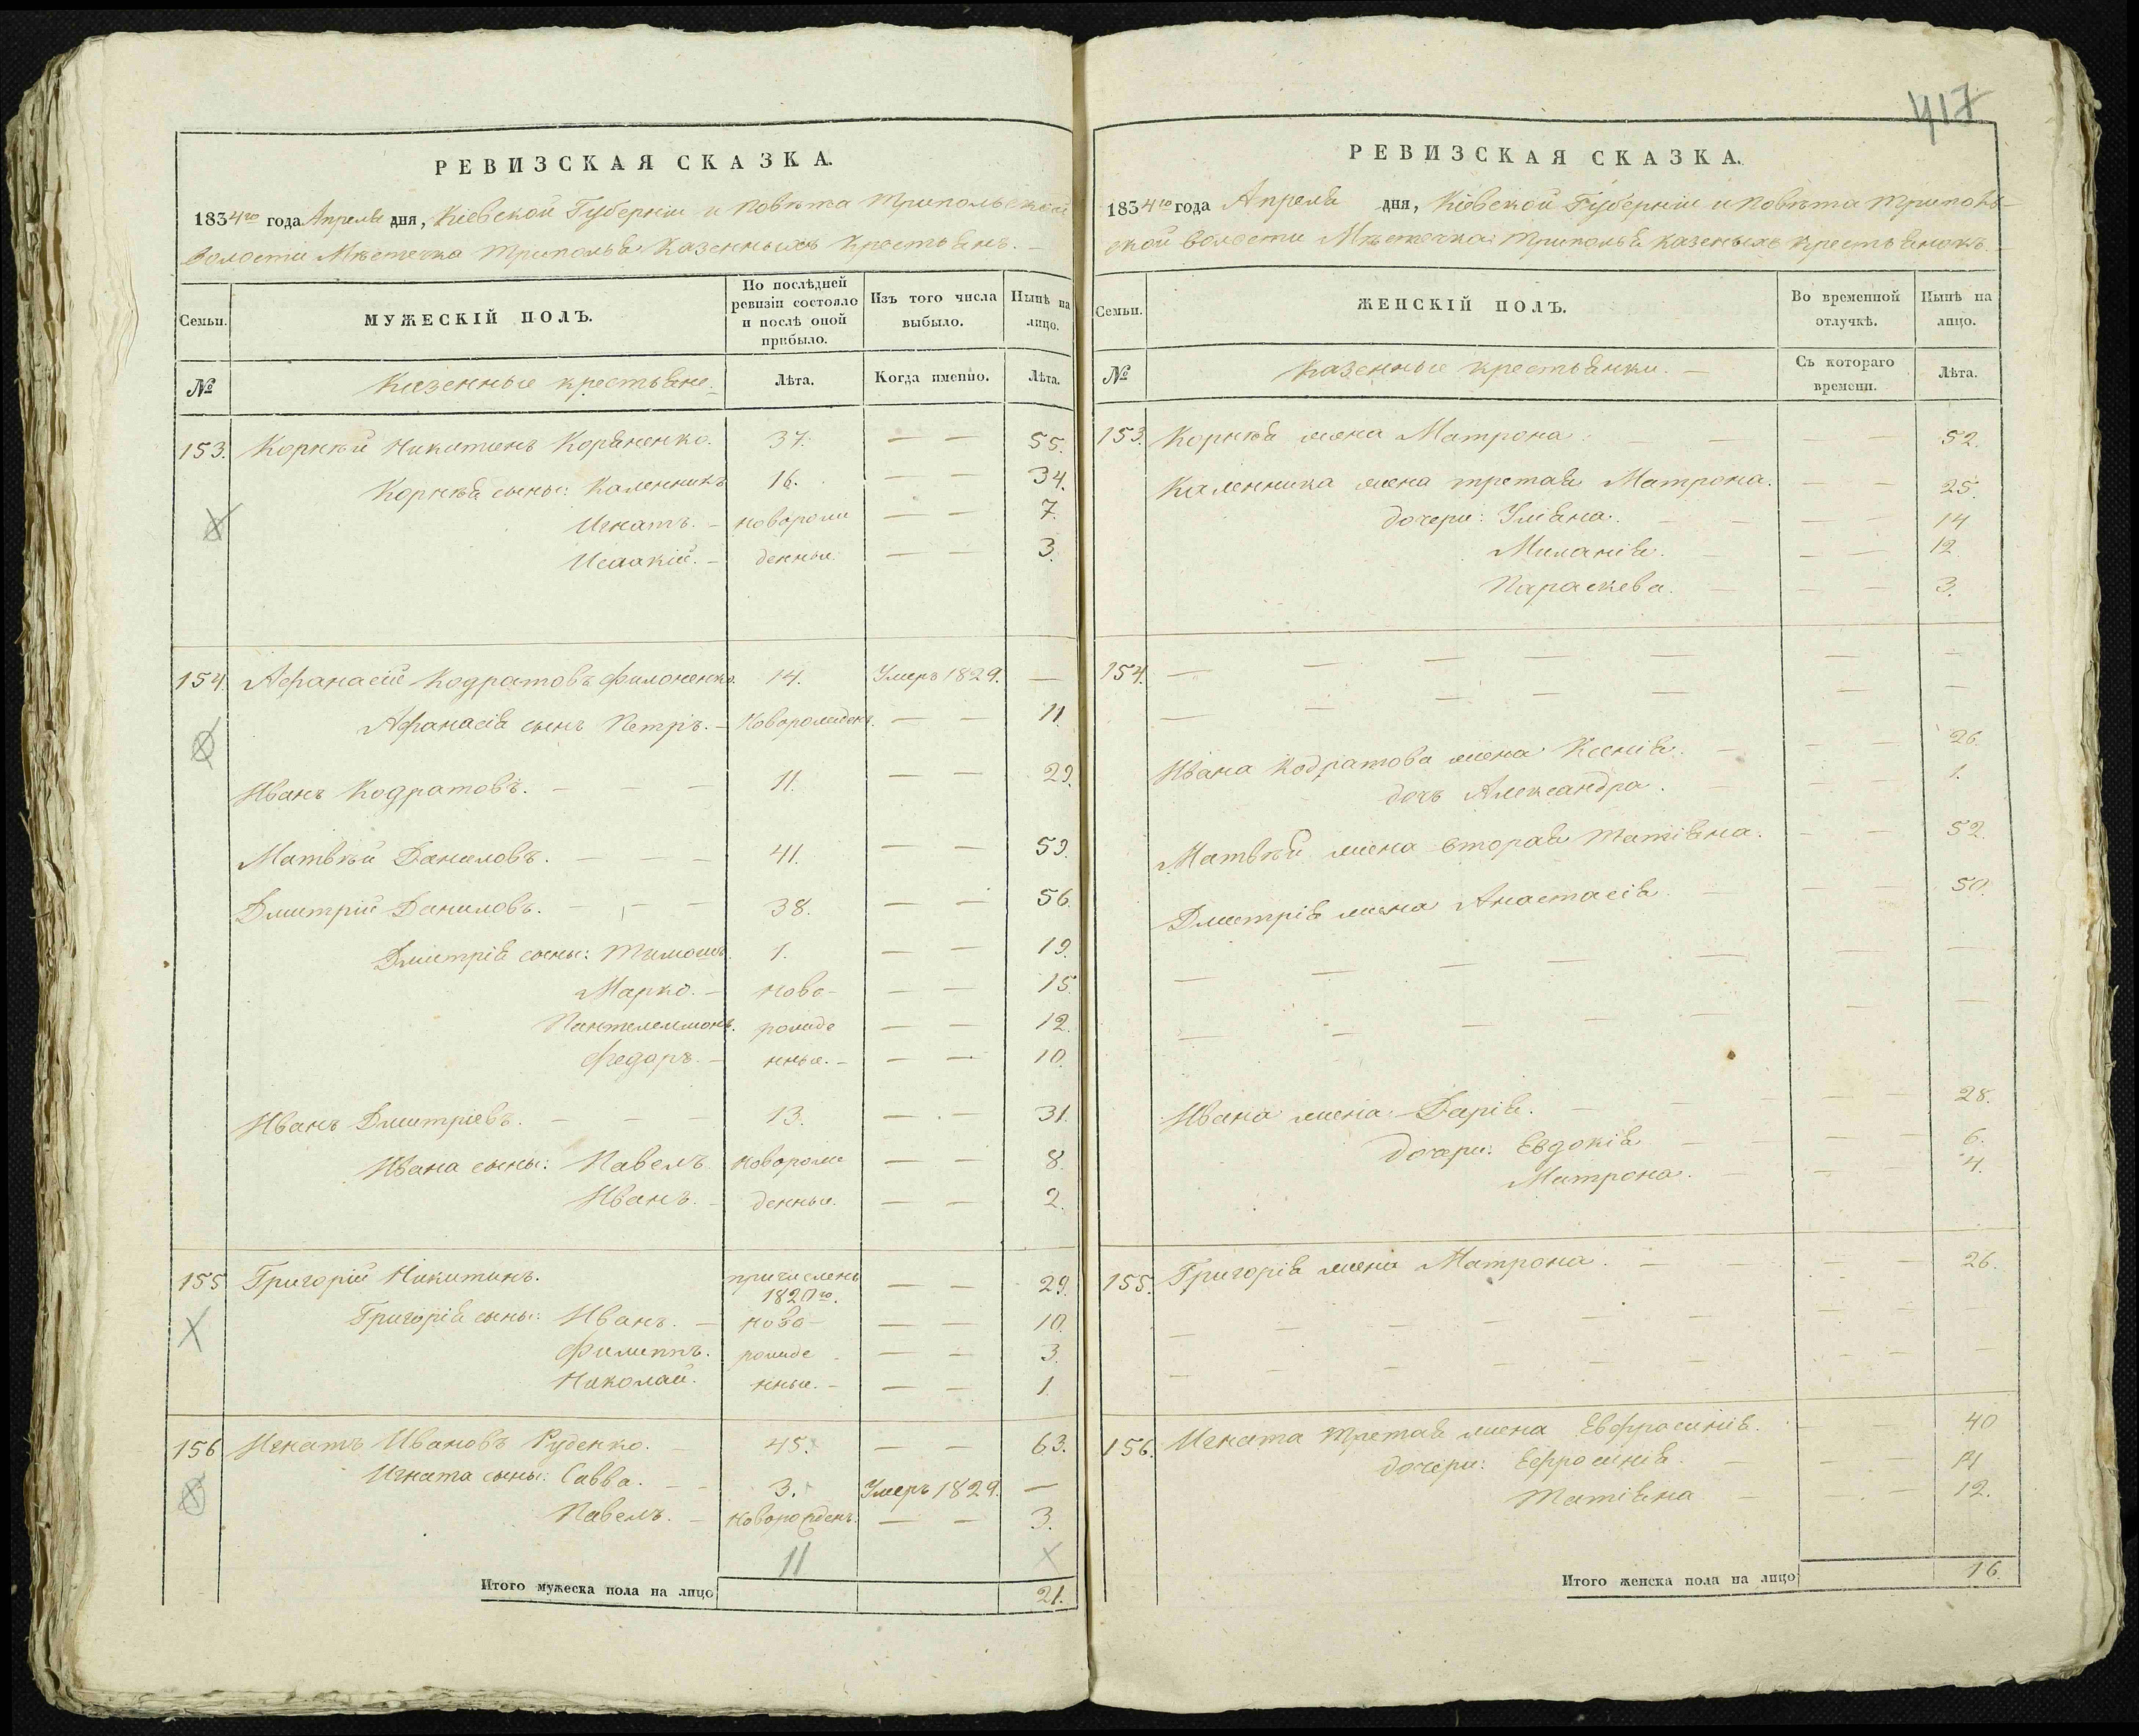 РЕВИЗСКАЯ СКАЗКА.
1834го года Апреля дня, Кіевской Губерніи и Повѣта Трипольской
волости Мѣстечка Триполья Казенныхъ Крестьянъ. —
Семьи.
МУЖЕСКІЙ ПОЛЪ.
По послѣдней ревизіи состояло и послѣ оной прибыло.
Изъ того числа выбыло.
Нынѣ на лицо.
№
Казенные крестьяне.
Лѣта.
Когда именно.
Лѣта.
153. Корнѣй Никитинъ Коряненко. 37. — — 55.
Корнѣя сыны: Каленникъ 16. — — 34.
Игнатъ. — новорож — — 7.
Исаакій. — денные — — 3.
154. Афанасій Кодратовъ Филоненко. 14. Умеръ 1829. —
Афанасія сынъ Петръ. — Новорожденъ. — — 11
Иванъ Кодратовъ. — — — 11. — — 29.
Матвѣй Даниловъ. — — — 41. — — 59.
Дмитрій Даниловъ. — — — 38. — — 56.
Дмитрія сыны: Тимошъ. 1. — — 19.
Марко. — ново- — — 15.
Пантелеимонъ. рожде — — 12.
Федоръ. — нные. — — — 10.
Иванъ Дмитріевъ. — — — 13. — — 31.
Ивана сыны: Павелъ новорож — — 8.
Иванъ. — денные. — — 2.
155 Григорій Никитинъ. причисленъ 1820го. — — 29.
Григорія сыны: Иванъ. — ново- — — 10.
Филиппъ. рожде — — 3.
Николай. нные. — — — 1.
156 Игнатъ Ивановъ Руденко. — 45. — — 63.
Игната сыны: Савва. — — 3. Умеръ 1829. —
Павелъ. — новорожденъ. — — 3.
11
Итого мужеска пола на лицо 21.
417
РЕВИЗСКАЯ СКАЗКА.
1834го года Апреля дня, Кіевской Губерніи и Повѣта Триполь-
ской волости Мѣстечка Триполья казеныхъ крестьянокъ.
Семьи.
ЖЕНСКІЙ ПОЛЪ.
Во временной отлучкѣ.
Нынѣ на лицо.
№
Казенные крестьянки. —
Съ котораго времени.
Лѣта.
153. Корнѣя жена Матрона. — — — — 52.
Каленника жена третая Матрона. — — 25.
дочери: Уліяна. — — — — 14
Миланія. — — — 12.
Параскева. — — — 3.
154. — — — — — — — —
— — — — — — — —
Ивана Кодратова жена Ксенія. — — — 26.
дочь Александра. — — — 1.
Матвѣя жена вторая Татіяна. — — 52.
Дмитрія жена Анастасія — — — 50.
— — — — — — — —
— — — — — — —
Ивана жена Дарія. — — — — 28.
дочери: Евдокія — — — — 6.
Матрона. — — — 4.
155. Григорія жена Матрона. — — — — 26.
— — — — — — — —
— — — — — — — —
156. Игната третая жена Евфросинія. — — 40
дочери: Ефросинія. — — — 14
Татіяна — — — 12.
Итого женска пола на лицо 16.